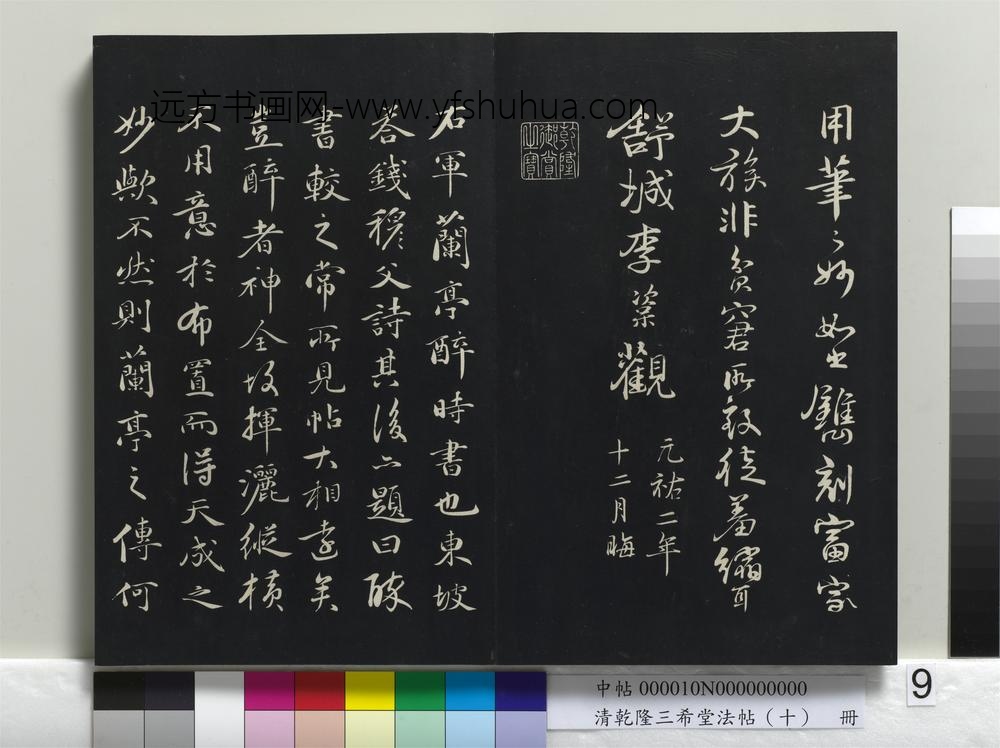 远方书画网-www.yfshuhua.com
用筆之妙如鐫刻富家
大族非貧窶所致徒羞縮耳
舒城李楶觀
元祐二年
十二月晦
乾隆
御賞
之寶
右軍蘭亭醉時書也東坡
答錢穆父詩其後亦題曰醉
書較之常所見帖大相遠矣
豈醉者神全故揮灑縱橫
不用意於布置而得天成之
妙歟不然則蘭亭之傳何
中帖 000010N000000000
清乾隆三希堂法帖（十） 冊
9